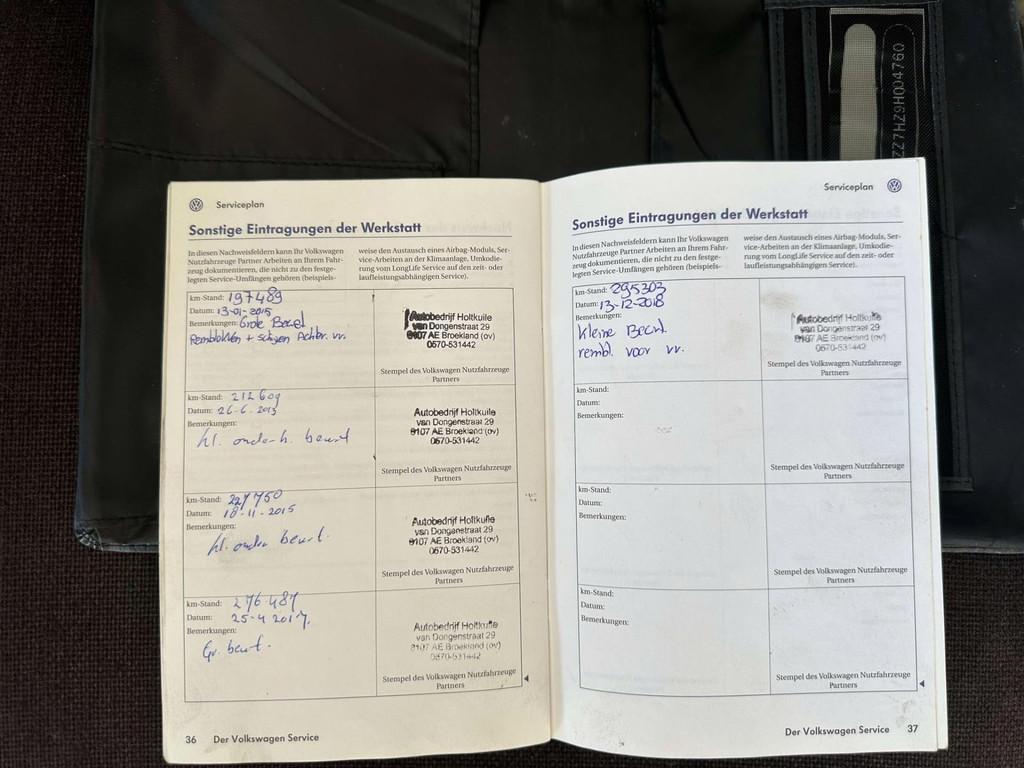 ZZ7HZ9H004760
Serviceplan
Sonstige Eintragungen der Werkstatt
In diesen Nachweisfeldern kann Ihr Volkswagen
Nutzfahrzeuge Partner Arbeiten an Ihrem Fahr-
zeug dokumentieren, die nicht zu den festge-
legten Service-Umfängen gehören (beispiels-
weise den Austausch eines Airbag-Moduls, Ser-
vice-Arbeiten an der Klimaanlage, Umkodie-
rung vom LongLife Service auf den zeit- oder
laufleistungsabhängigen Service).
km-Stand: 197489
Datum: 13-01-2015
Bemerkungen: Grote Beurt
Remblokken + schijven Achter. vv.
Autobedrijf Holtkuile
van Dongenstraat 29
8107 AE Broekland (ov)
0570-531442
Stempel des Volkswagen Nutzfahrzeuge
Partners
km-Stand: 212609
Datum: 26-6-2015
Bemerkungen:
kl. onderh. beurt
Autobedrijf Holtkuile
van Dongenstraat 29
8107 AE Broekland (ov)
0570-531442
Stempel des Volkswagen Nutzfahrzeuge
Partners
km-Stand: 227750
Datum: 18-11-2015
Bemerkungen:
kl. onder beurt.
Autobedrijf Holtkuile
van Dongenstraat 29
8107 AE Broekland (ov)
0570-531442
Stempel des Volkswagen Nutzfahrzeuge
Partners
km-Stand: 276487
Datum: 25-4 2017.
Bemerkungen:
Gr. beurt.
Autobedrijf Holtkuile
van Dongenstraat 29
8107 AE Broekland (ov)
0570-531442
Stempel des Volkswagen Nutzfahrzeuge
Partners
36 Der Volkswagen Service
Serviceplan
Sonstige Eintragungen der Werkstatt
In diesen Nachweisfeldern kann Ihr Volkswagen
Nutzfahrzeuge Partner Arbeiten an Ihrem Fahr-
zeug dokumentieren, die nicht zu den festge-
legten Service-Umfängen gehören (beispiels-
weise den Austausch eines Airbag-Moduls, Ser-
vice-Arbeiten an der Klimaanlage, Umkodie-
rung vom LongLife Service auf den zeit- oder
laufleistungsabhängigen Service).
km-Stand: 295303
Datum: 13-12-2018
Bemerkungen:
Kleine Beurt.
rembl. voor vv.
Autobedrijf Holtkuile
van Dongenstraat 29
8107 AE Broekland (ov)
0570-531442
Stempel des Volkswagen Nutzfahrzeuge
Partners
km-Stand:
Datum:
Bemerkungen:
Stempel des Volkswagen Nutzfahrzeuge
Partners
km-Stand:
Datum:
Bemerkungen:
Stempel des Volkswagen Nutzfahrzeuge
Partners
km-Stand:
Datum:
Bemerkungen:
Stempel des Volkswagen Nutzfahrzeuge
Partners
Der Volkswagen Service 37